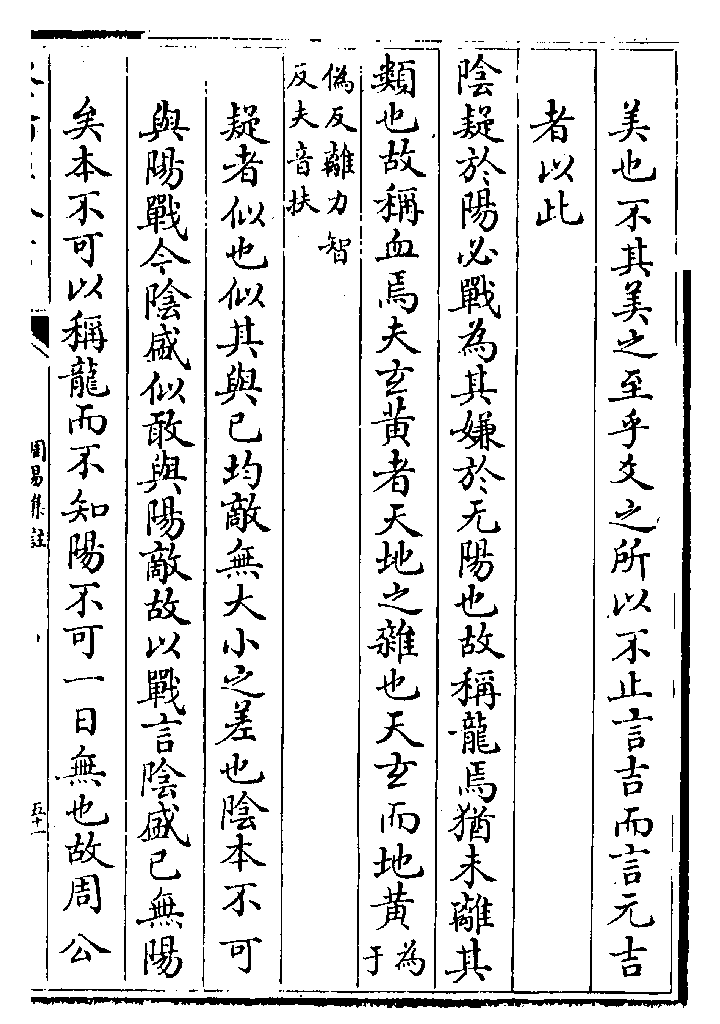 美也不其美之至乎爻之所以不止言吉而言元吉
者以此
陰疑於陽必戰為其嫌於无陽也故稱龍焉猶未離其
類也故稱血焉夫玄黃者天地之雜也天玄而地黃為于
偽反離力智
反夫音扶
疑者似也似其與已均敵無大小之差也陰本不可
與陽戰今陰盛似敢與陽敵故以戰言陰盛已無陽
矣本不可以稱龍而不知陽不可一日無也故周公
周易集註
五十一